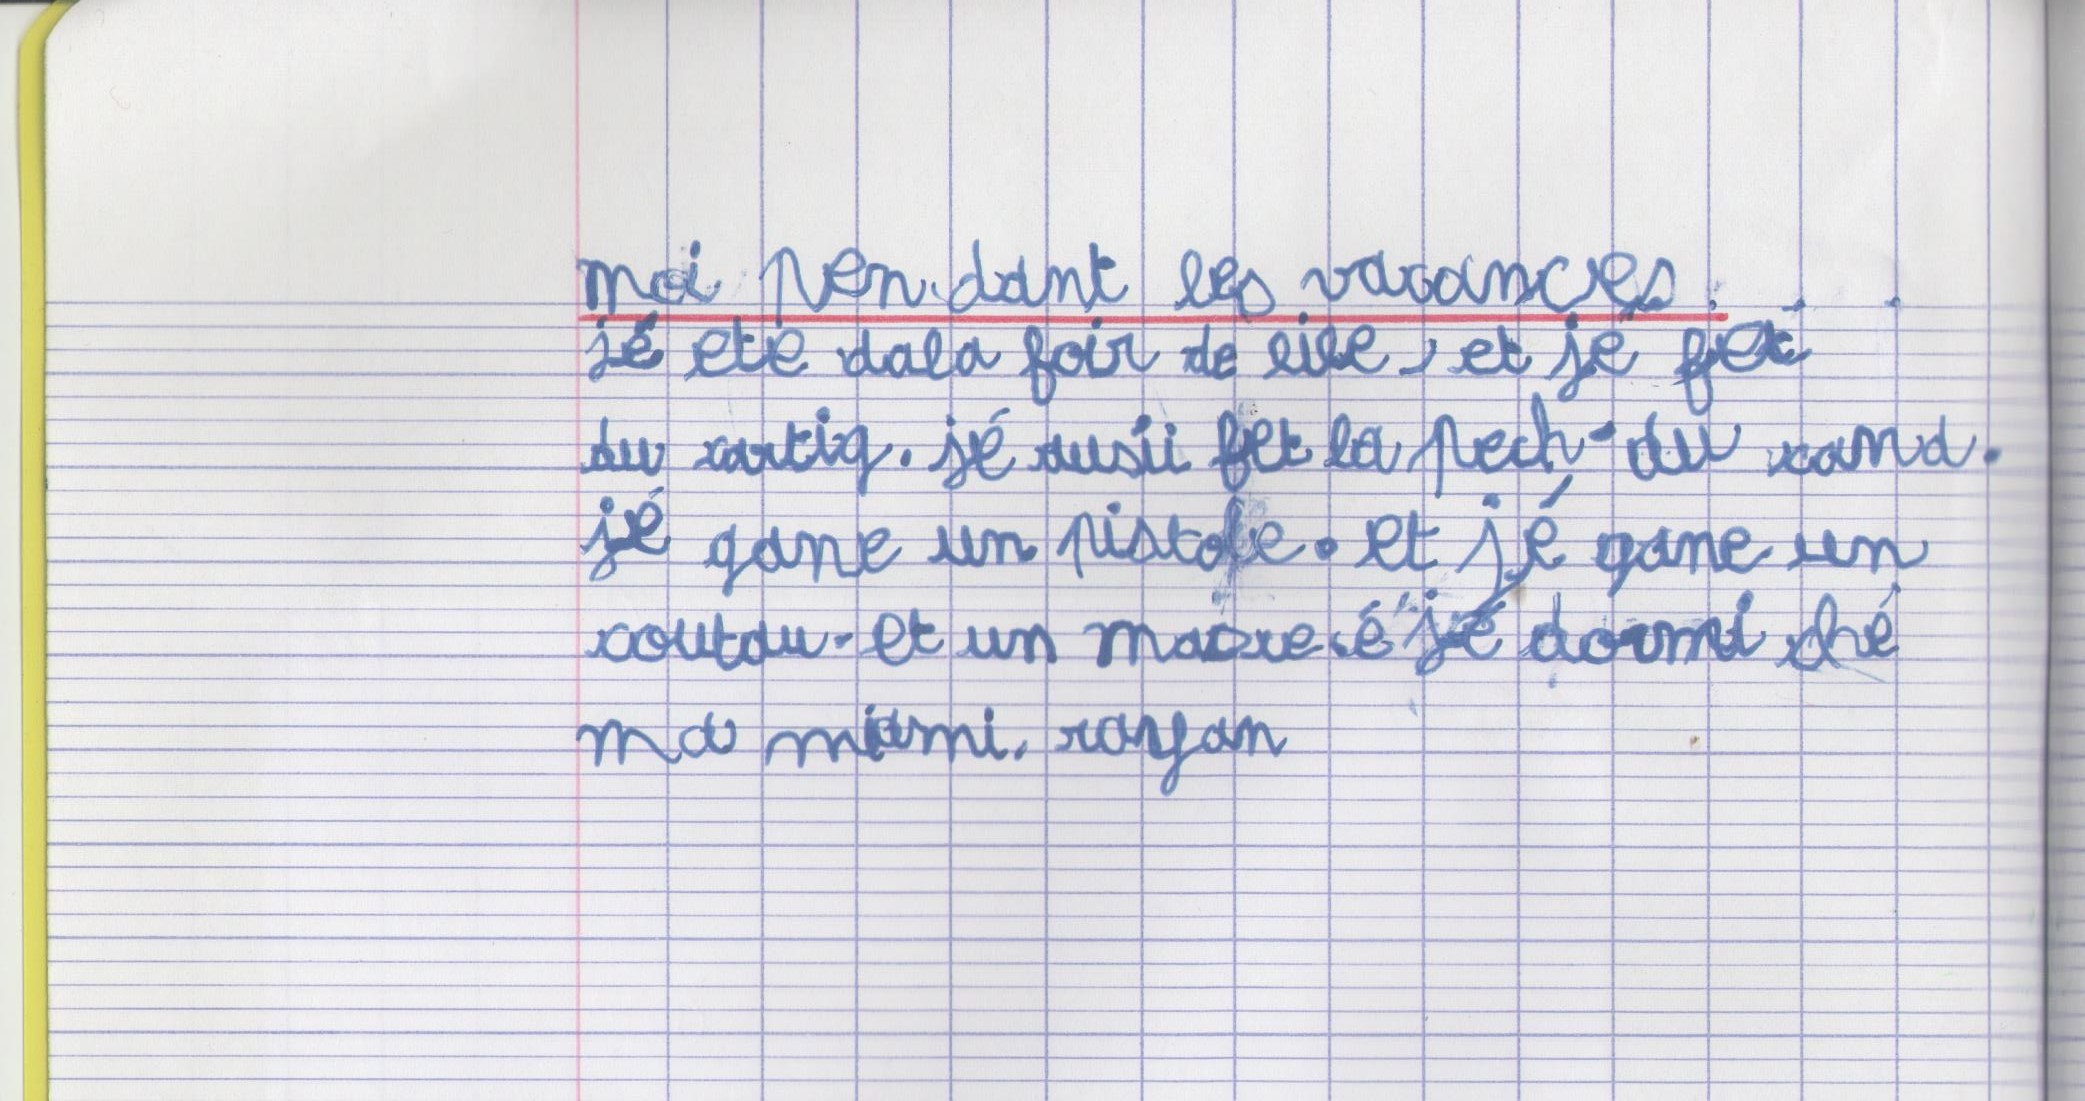 moi pendant les vacances.
jé ete dala foir de lile, et je fet
du cartig. jé ausii fet la pech du cana.
jé gane un pistole. et jé gane un
coutau. et un masce. é jé dormi ché
ma miami. rayan